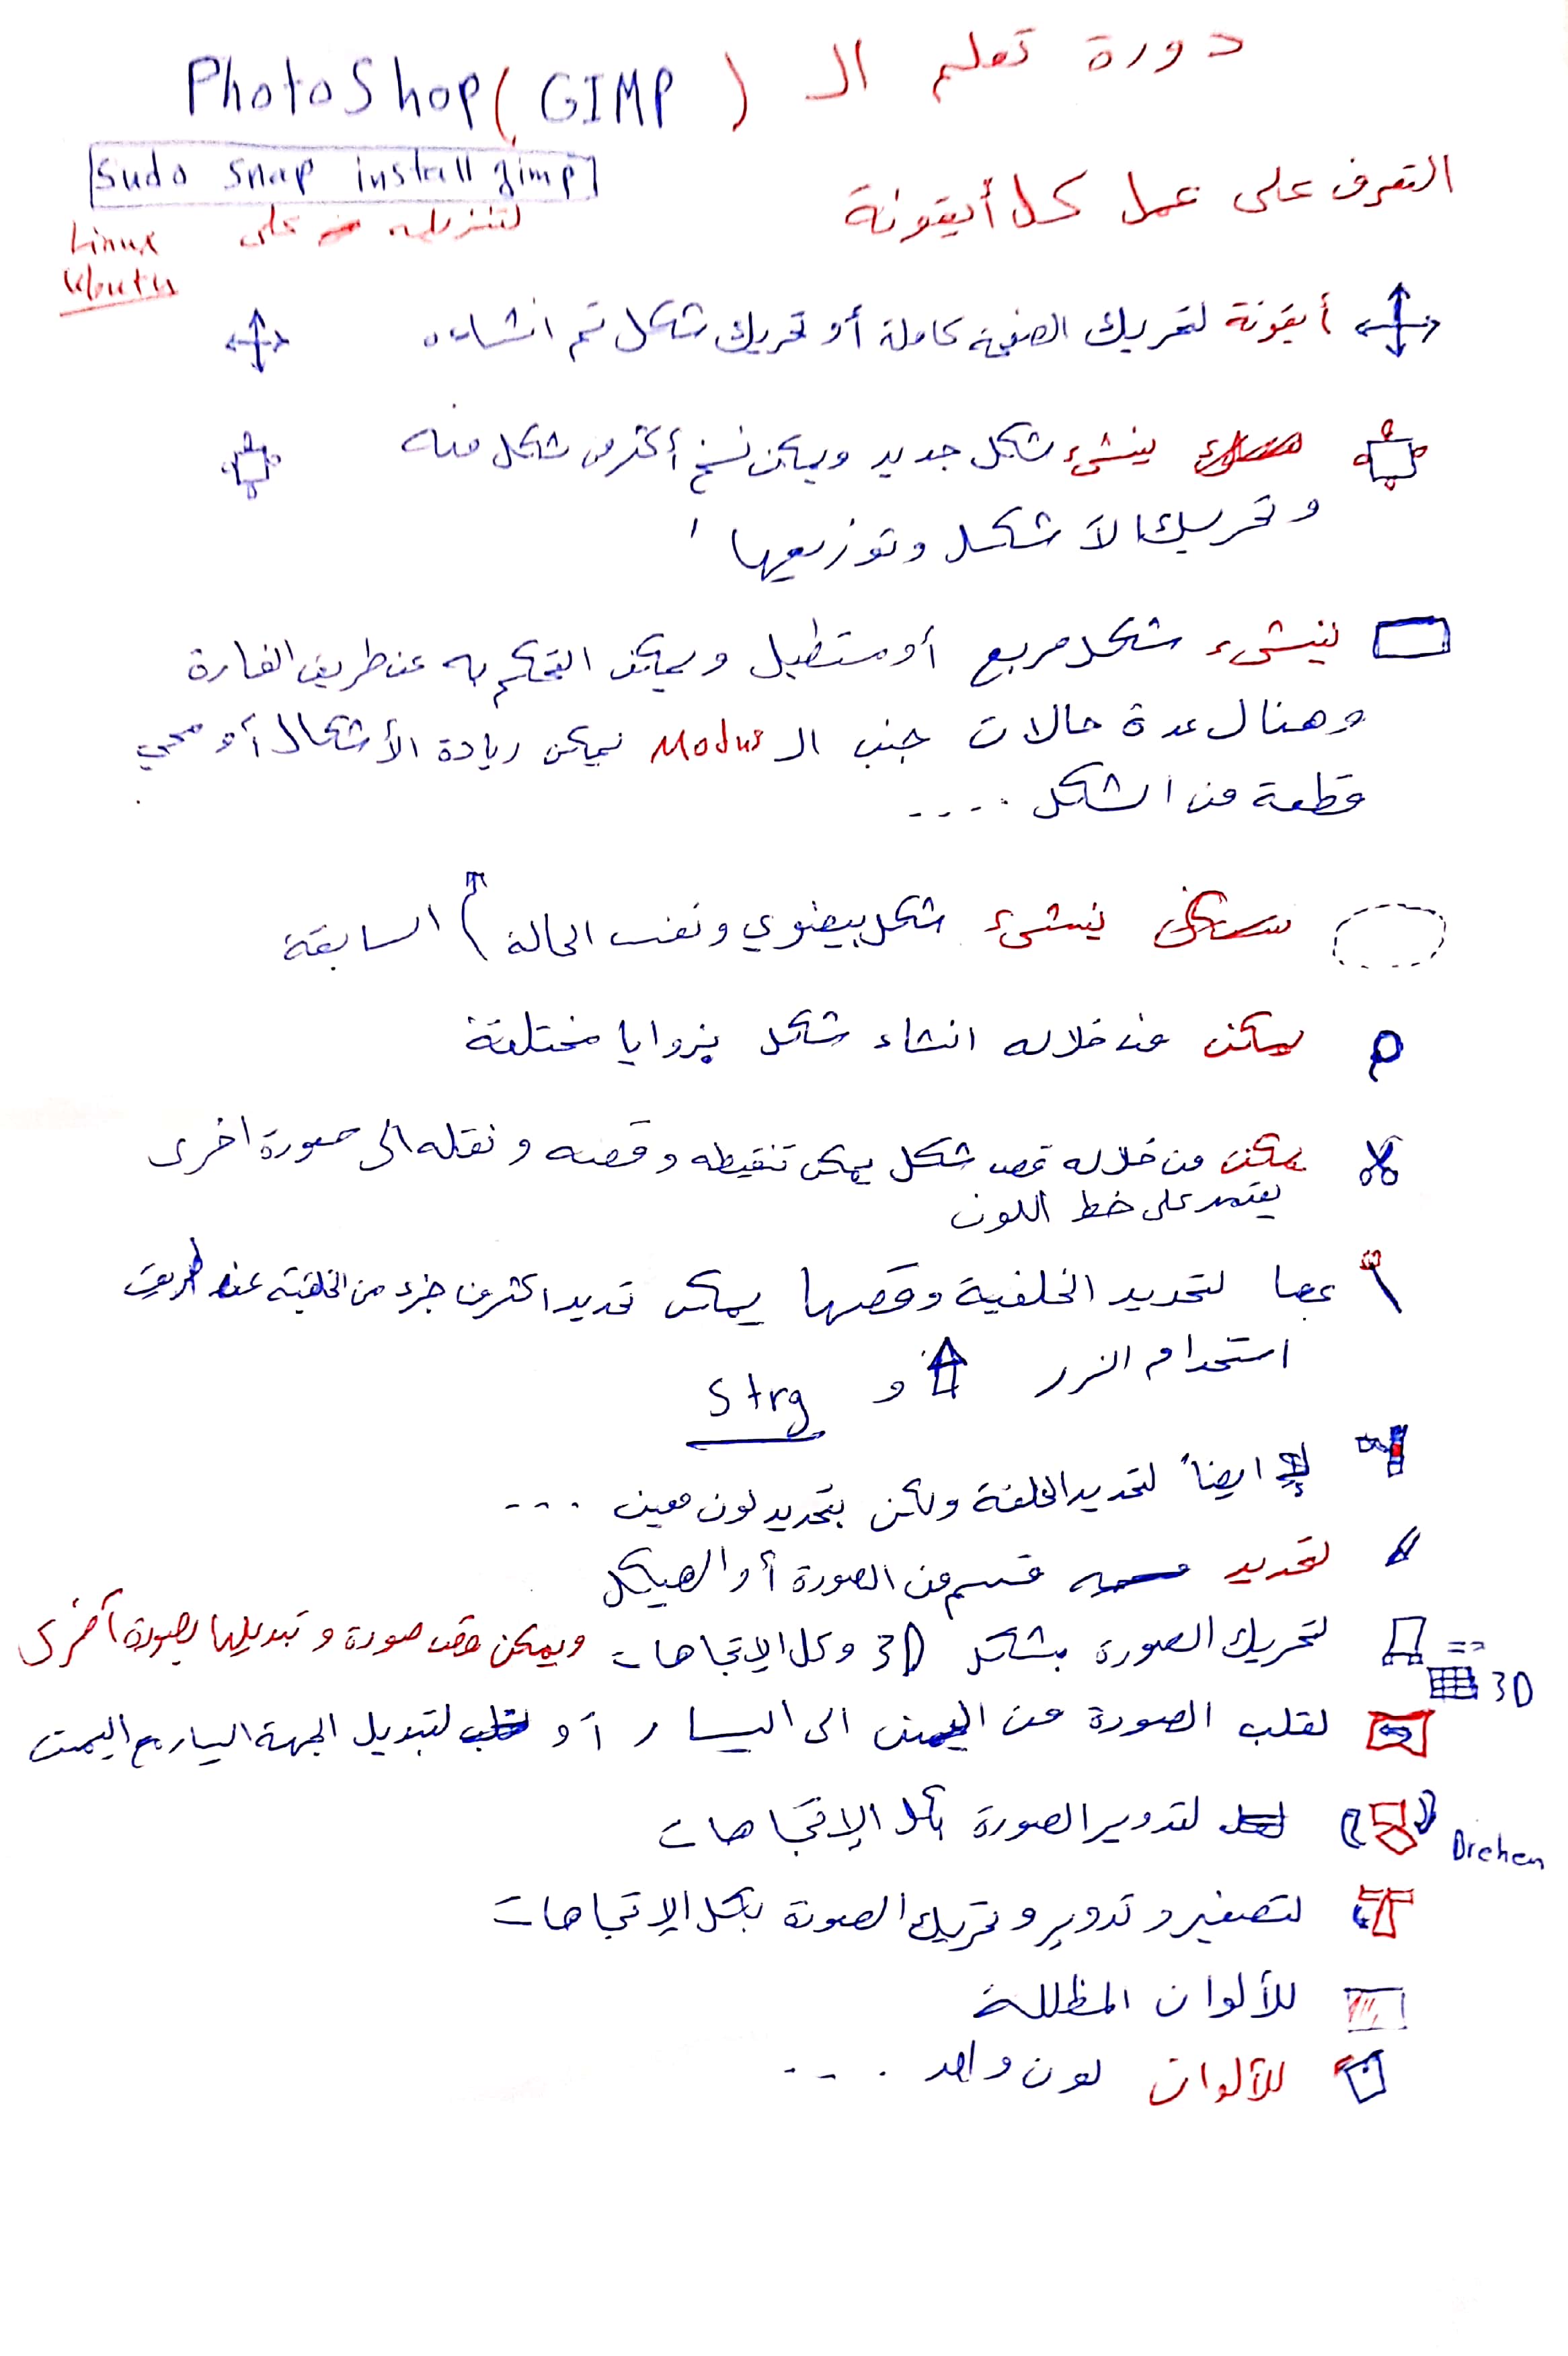 دورة تعلم الـ PhotoShop (GIMP)
sudo snap install gimp
لتنزيله على Linux
التعرف على عمل كل أيقونة
أيقونة لتحريك الصفحة كاملة أو تحريك شكل تم انشاءه
ينشىء شكل جديد ويمكن نسخ أكثر من شكل منه
وتحريك الأشكل وتوزيعها
ينشىء شكل مربع أو مستطيل ويمكن التحكم به عن طريق الفارة
وهناك عدة حالات جنب الـ Modus يمكن زيادة الأشكال أو محي
قطعة من الشكل ....
ينشىء شكل بيضوي ونفس الحالة السابقة
يمكن من خلاله انشاء شكل بزوايا مختلفة
يمكن من خلاله قص شكل يمكن تنقيطه وقصه ونقله الى صورة اخرى
يعتمد على خط اللون
عصا لتحديد الخلفية وقصها يمكن تحديد اكثر من جزء من الخلفية عن طريق
استخدام الزر و Strg
ايضاً لتحديد الخلفة ولكن بتحديد لون معين ...
لتحديد قسم من الصورة أو الهيكل
لتحريك الصورة بشكل 3D وكل الإتجاهات ويمكن قص صورة وتبديلها بصورة أخرى
3D
لقلب الصورة من اليمين الى اليسار أو لتبديل الجهة اليسار مع اليمين
لتدوير الصورة بكل الإتجاهات
Drehen
لتصغير وتدوير وتحريك الصورة بكل الإتجاهات
للألوان المظللة
للألوان لون واحد ....